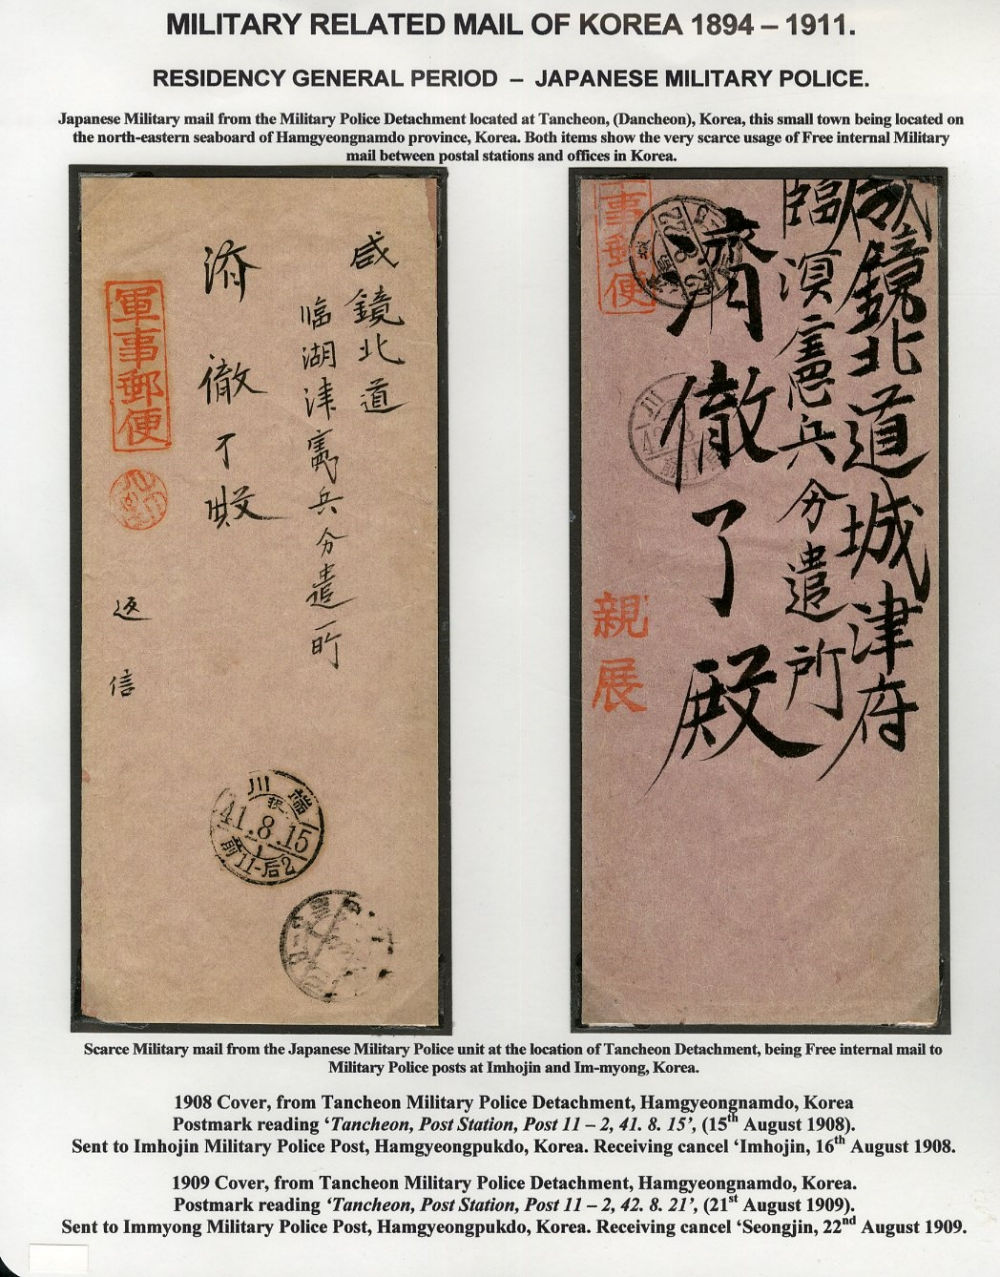 MILITARY RELATED MAIL OF KOREA 1894 – 1911.
RESIDENCY GENERAL PERIOD – JAPANESE MILITARY POLICE.
Japanese Military mail from the Military Police Detachment located at Tancheon, (Dancheon), Korea, this small town being located on
the north-eastern seaboard of Hamgyeongnamdo province, Korea. Both items show the very scarce usage of Free internal Military
mail between postal stations and offices in Korea.
咸鏡北道
臨湖津憲兵分遣所
済徹了殿
軍事郵便
返信
川端
41.8.15
前11-后2
咸鏡北道城津府
臨溟憲兵分遣所
済徹了殿
事郵便
親展
川
42.8
Scarce Military mail from the Japanese Military Police unit at the location of Tancheon Detachment, being Free internal mail to
Military Police posts at Imhojin and Im-myong, Korea.
1908 Cover, from Tancheon Military Police Detachment, Hamgyeongnamdo, Korea
Postmark reading ‘Tancheon, Post Station, Post 11 – 2, 41. 8. 15’, (15th August 1908).
Sent to Imhojin Military Police Post, Hamgyeongpukdo, Korea. Receiving cancel ‘Imhojin, 16th August 1908.
1909 Cover, from Tancheon Military Police Detachment, Hamgyeongnamdo, Korea.
Postmark reading ‘Tancheon, Post Station, Post 11 – 2, 42. 8. 21’, (21st August 1909).
Sent to Immyong Military Police Post, Hamgyeongpukdo, Korea. Receiving cancel ‘Seongjin, 22nd August 1909.